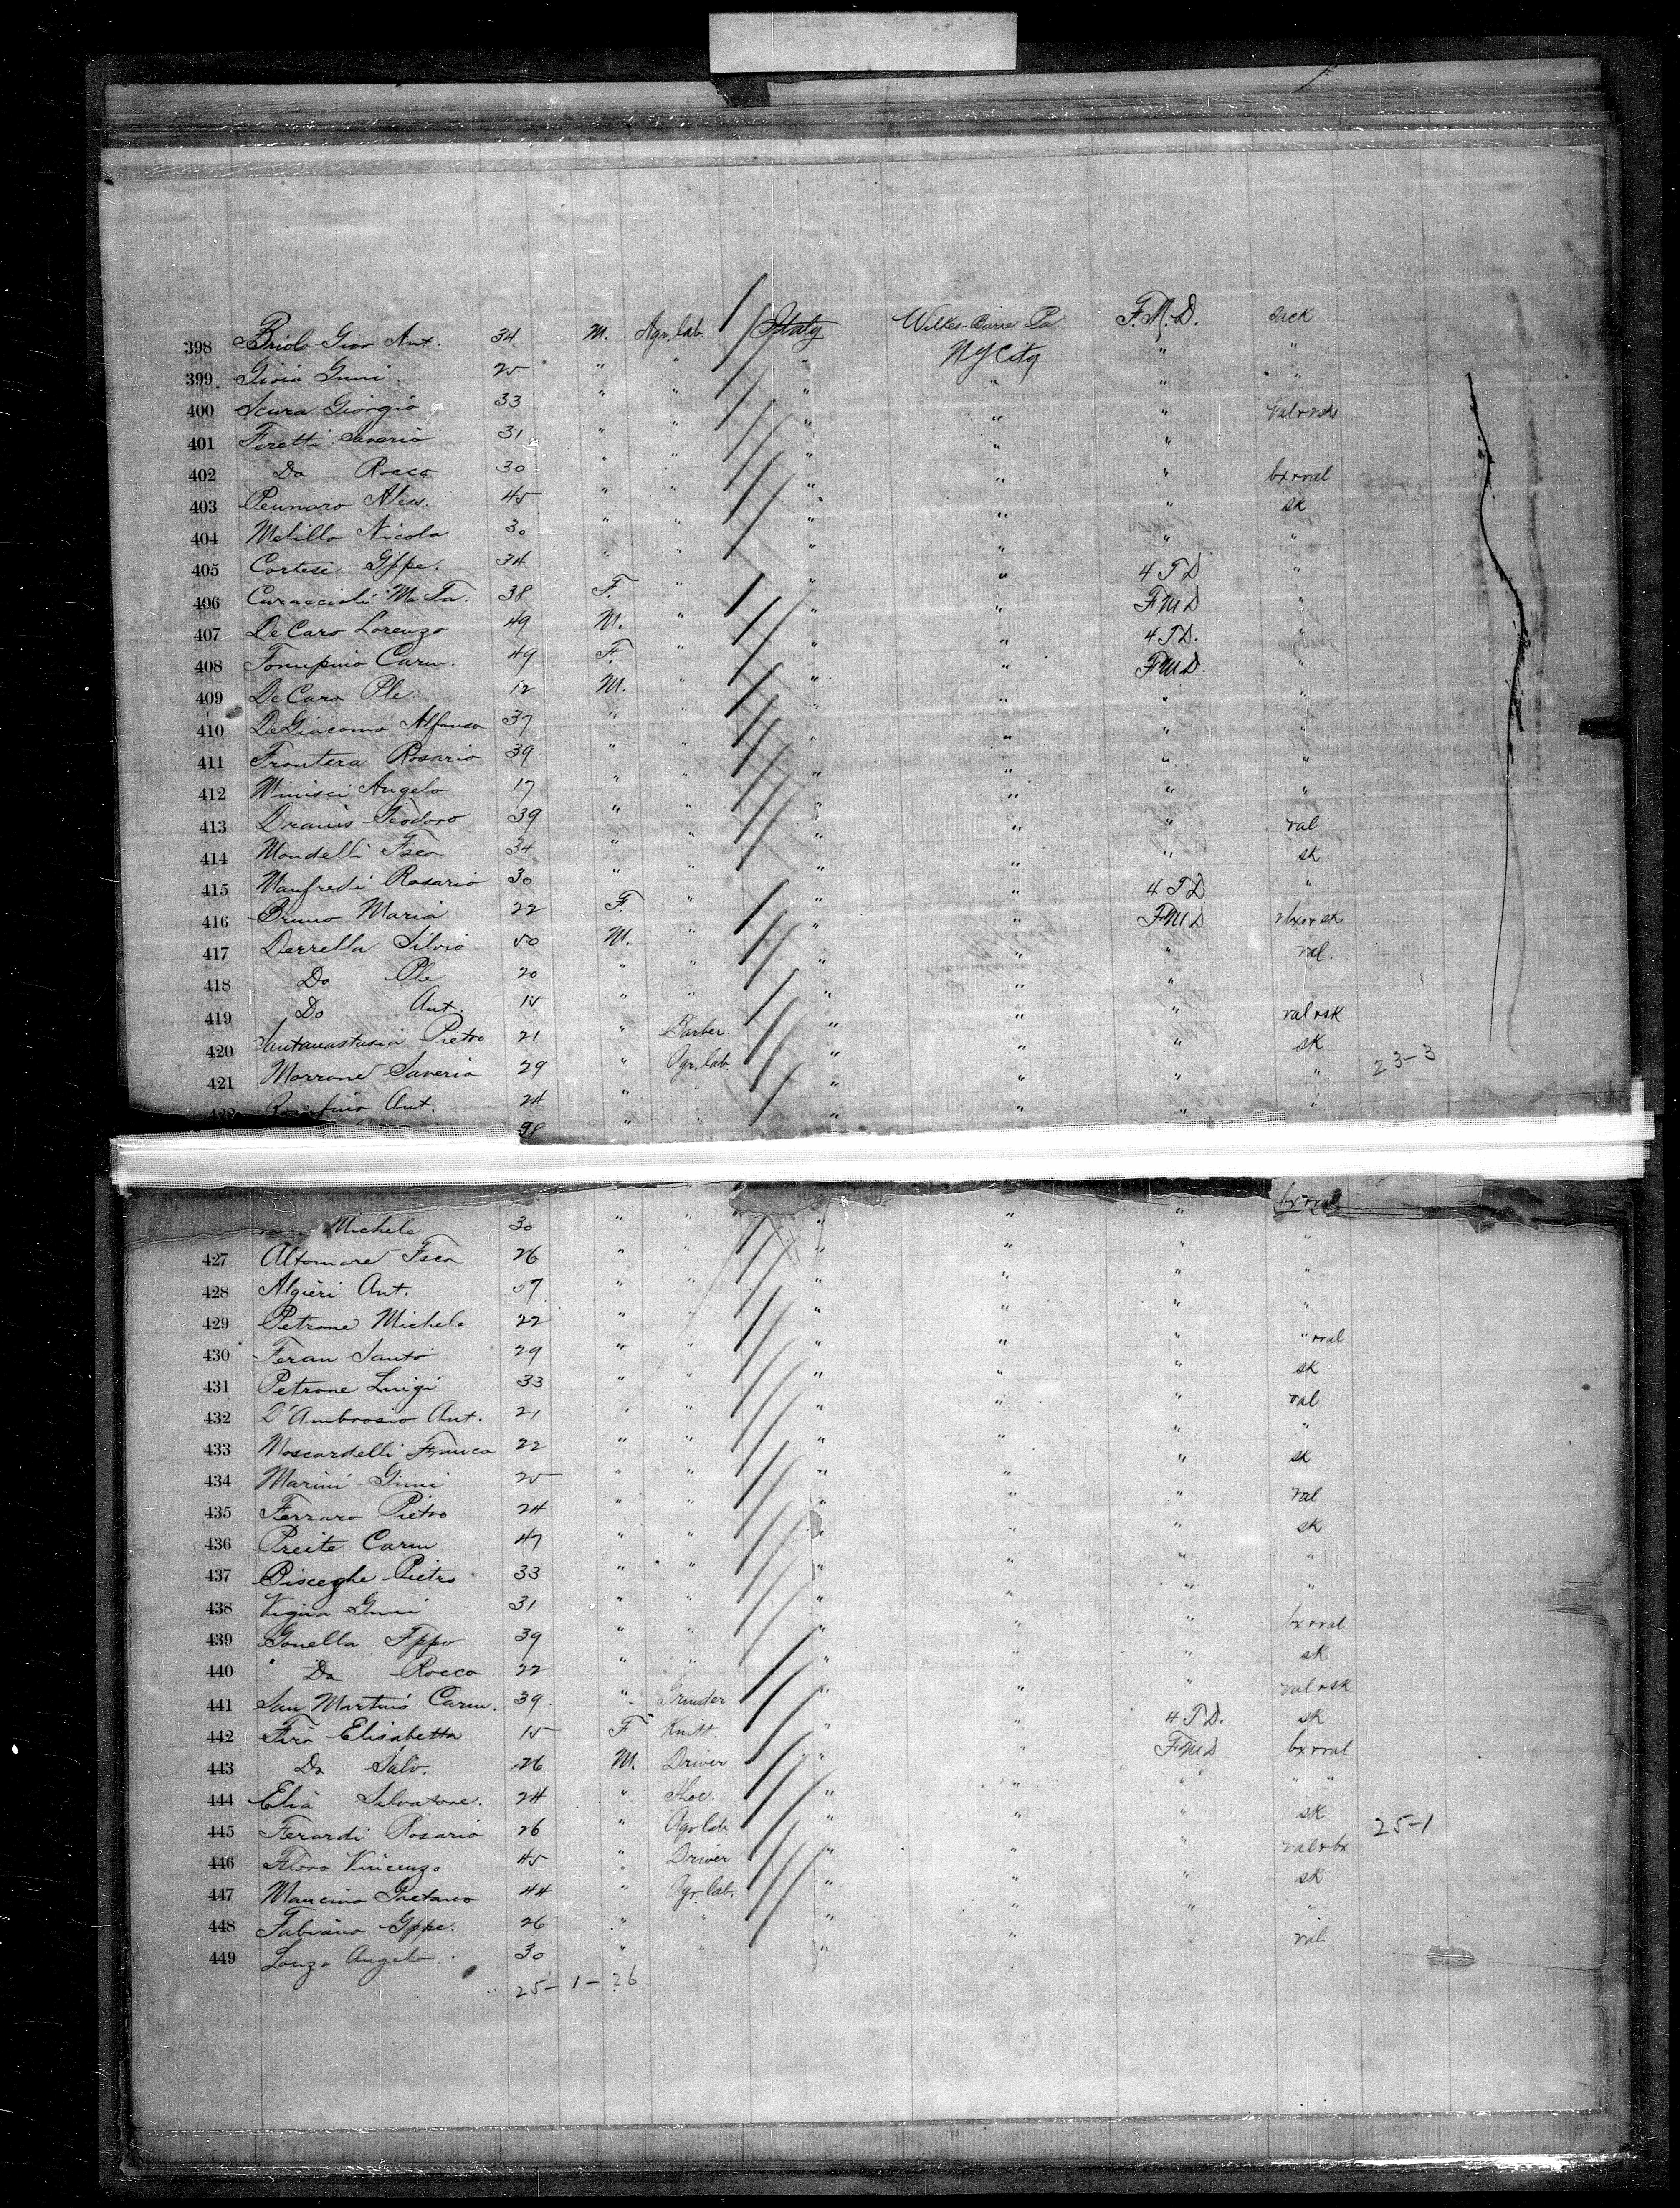 398 Gior Ant. 34 M. Agr. lab. Italy Wilkes-Barre Pa F.M.D. sack
399 Gioia Gnni 25 " " " N Y City " "
400 Scura Giorgio 33 " " " " " "
401 Feretti Saverio 31 " " " " " val + sk
402 Do Rocco 30 " " " " "
403 Pennaro Aless. 45 " " " " " bx + val
404 Melillo Nicola 30 " " " " " sk
405 Cortese Gppe. 34 " " " " " "
406 Caraccioli Ma Ta. 38 F. " " " 4 T D "
407 De Caro Lorenzo 49 M. " " " F M D "
408 Carm. 49 F. " " " 4 T D. "
409 De Caro Ple 12 M. " " " F M D. "
410 De Giacomo Alfonso 37 " " " " " "
411 Frontera Rosario 39 " " " " " "
412 Minisci Angelo 17 " " " " " "
413 Dramis Teodoro 39 " " " " " "
414 Mondelli Fsco 34 " " " " " val
415 Manfredi Rosario 30 " " " " " sk
416 Bruno Maria 22 F. " " " 4 T D "
417 Derrella Silvio 50 M. " " " F M D
418 Do Ple 20 " " " " " val.
419 Do Ant. 15 " " " " "
420 Santanastasia Pietro 21 " Barber. " " " val + sk
421 Morrone Saverio 29 " Agr. lab. " " " sk 23-3
422 Ant. 24 " " " " " "
38 " " " " "
Michele 30 " " " " " bx + val
427 Altomare Fsco 26 " " " " " "
428 Algieri Ant. " " " " " "
429 Petrone Michele 22 " " " " " "
430 Feran Santo 29 " " " " " " + val
431 Petrone Luigi 33 " " " " " sk
432 D'Ambrosio Ant. 21 " " " " " val
433 Moscardelli Franco 22 " " " " " "
434 Marini Gnni 25 " " " " " sk
435 Ferraro Pietro 24 " " " " " val
436 Preite Carm 47 " " " " " sk
437 Bisceglie Pietro 33 " " " " " "
438 Vigna Gnni 31 " " " " " "
439 Gonella Fppo 39 " " " " " bx + val
440 Do Rocco 22 " " " " " sk
441 San Martino Carm. 39. " Grinder " " " val + sk
442 Firo Elisabetta 15 F Knitt. " " 4 T D. sk
443 Do Salv. 26 M. Driver " " F M D bx + val
444 Elia Salvatore. 24 " Shoe. " " " " "
445 Ferardi Rosario 26 " Agr lab " " " sk 25-1
446 Floro Vincenzo 45 " Driver " " " val + bx
447 Mancino Gaetano 44 " Agr. lab. " " " sk
448 Fabiano Gppe. 26 " " " " " "
449 Lonzo Angelo. 30 " " " " " val
25 - 1 - 26